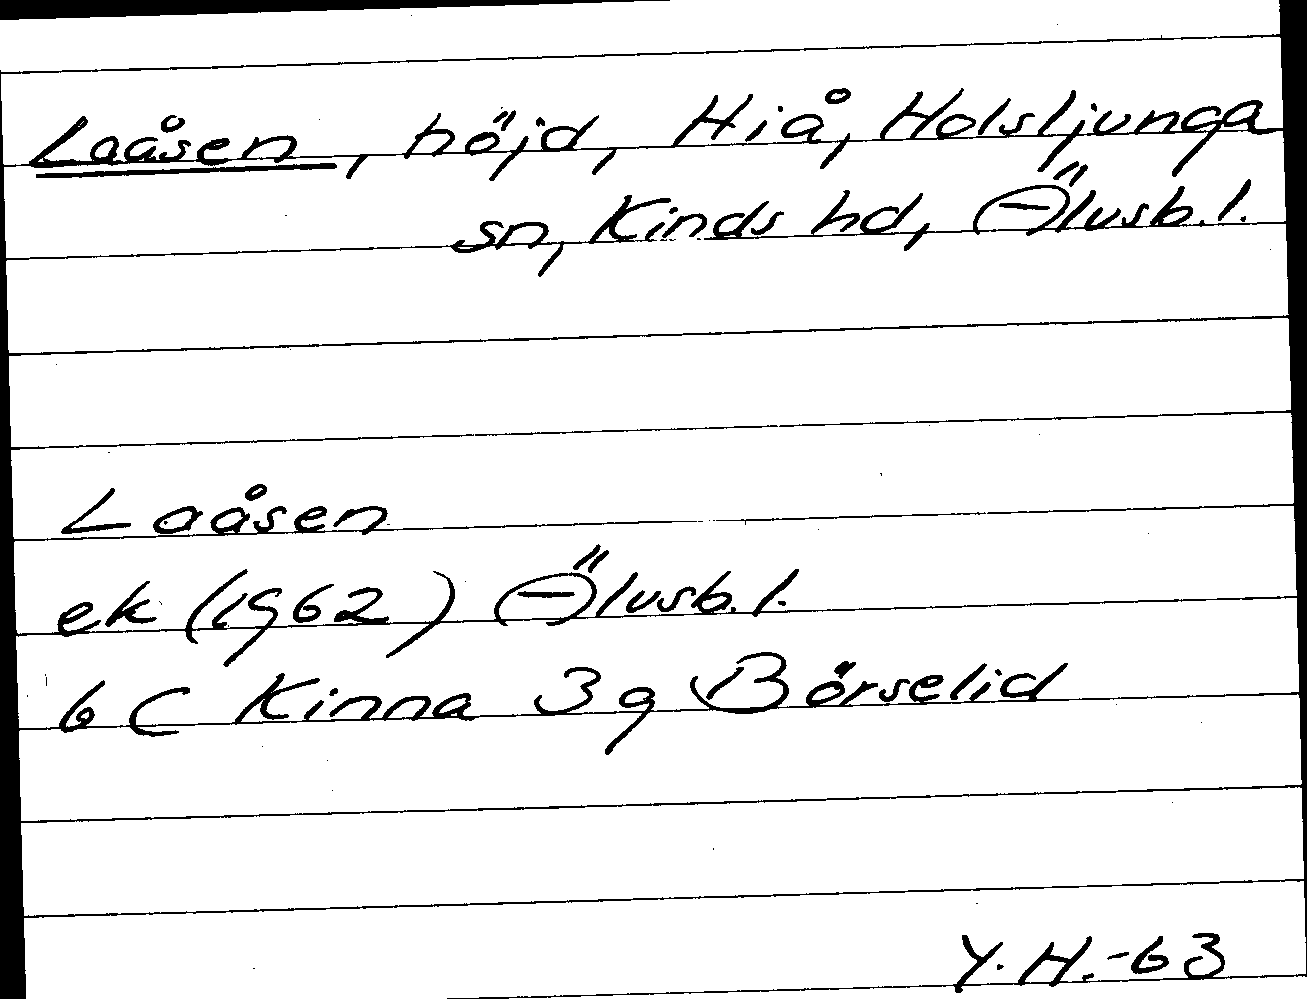 Laåsen, höjd, Hiå, Holsljunga
sn, Kinds hd, Älvsb. l.
Laåsen
ek (1962) Älvsb. l.
6 C Kinna 3 g Börselid
Y. H. -63